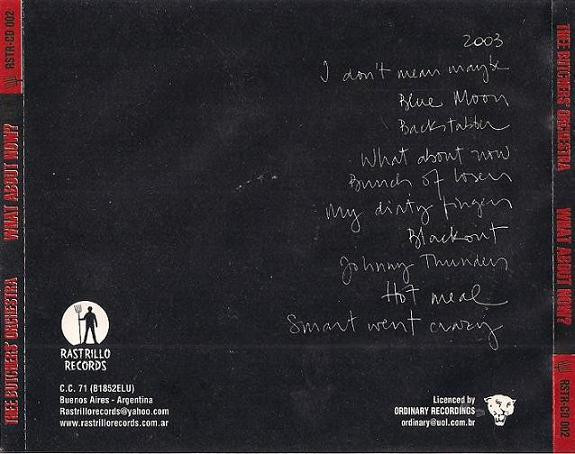 RSTR-CD 002
WHAT ABOUT NOW?
THEE BUTCHERS' ORCHESTRA
2003
I don't mean maybe
Blue Moon
Backstabber
What about now
Bunch of losers
My dirty fingers
Blackout
Johnny Thunders
Hot meal
Smart went crazy
RASTRILLO
RECORDS
C.C. 71 (B1852ELU)
Buenos Aires - Argentina
Rastrillorecords@yahoo.com
www.rastrillorecords.com.ar
Licenced by
ORDINARY RECORDINGS
ordinary@uol.com.br
THEE BUTCHERS' ORCHESTRA
WHAT ABOUT NOW?
RSTR-CD 002